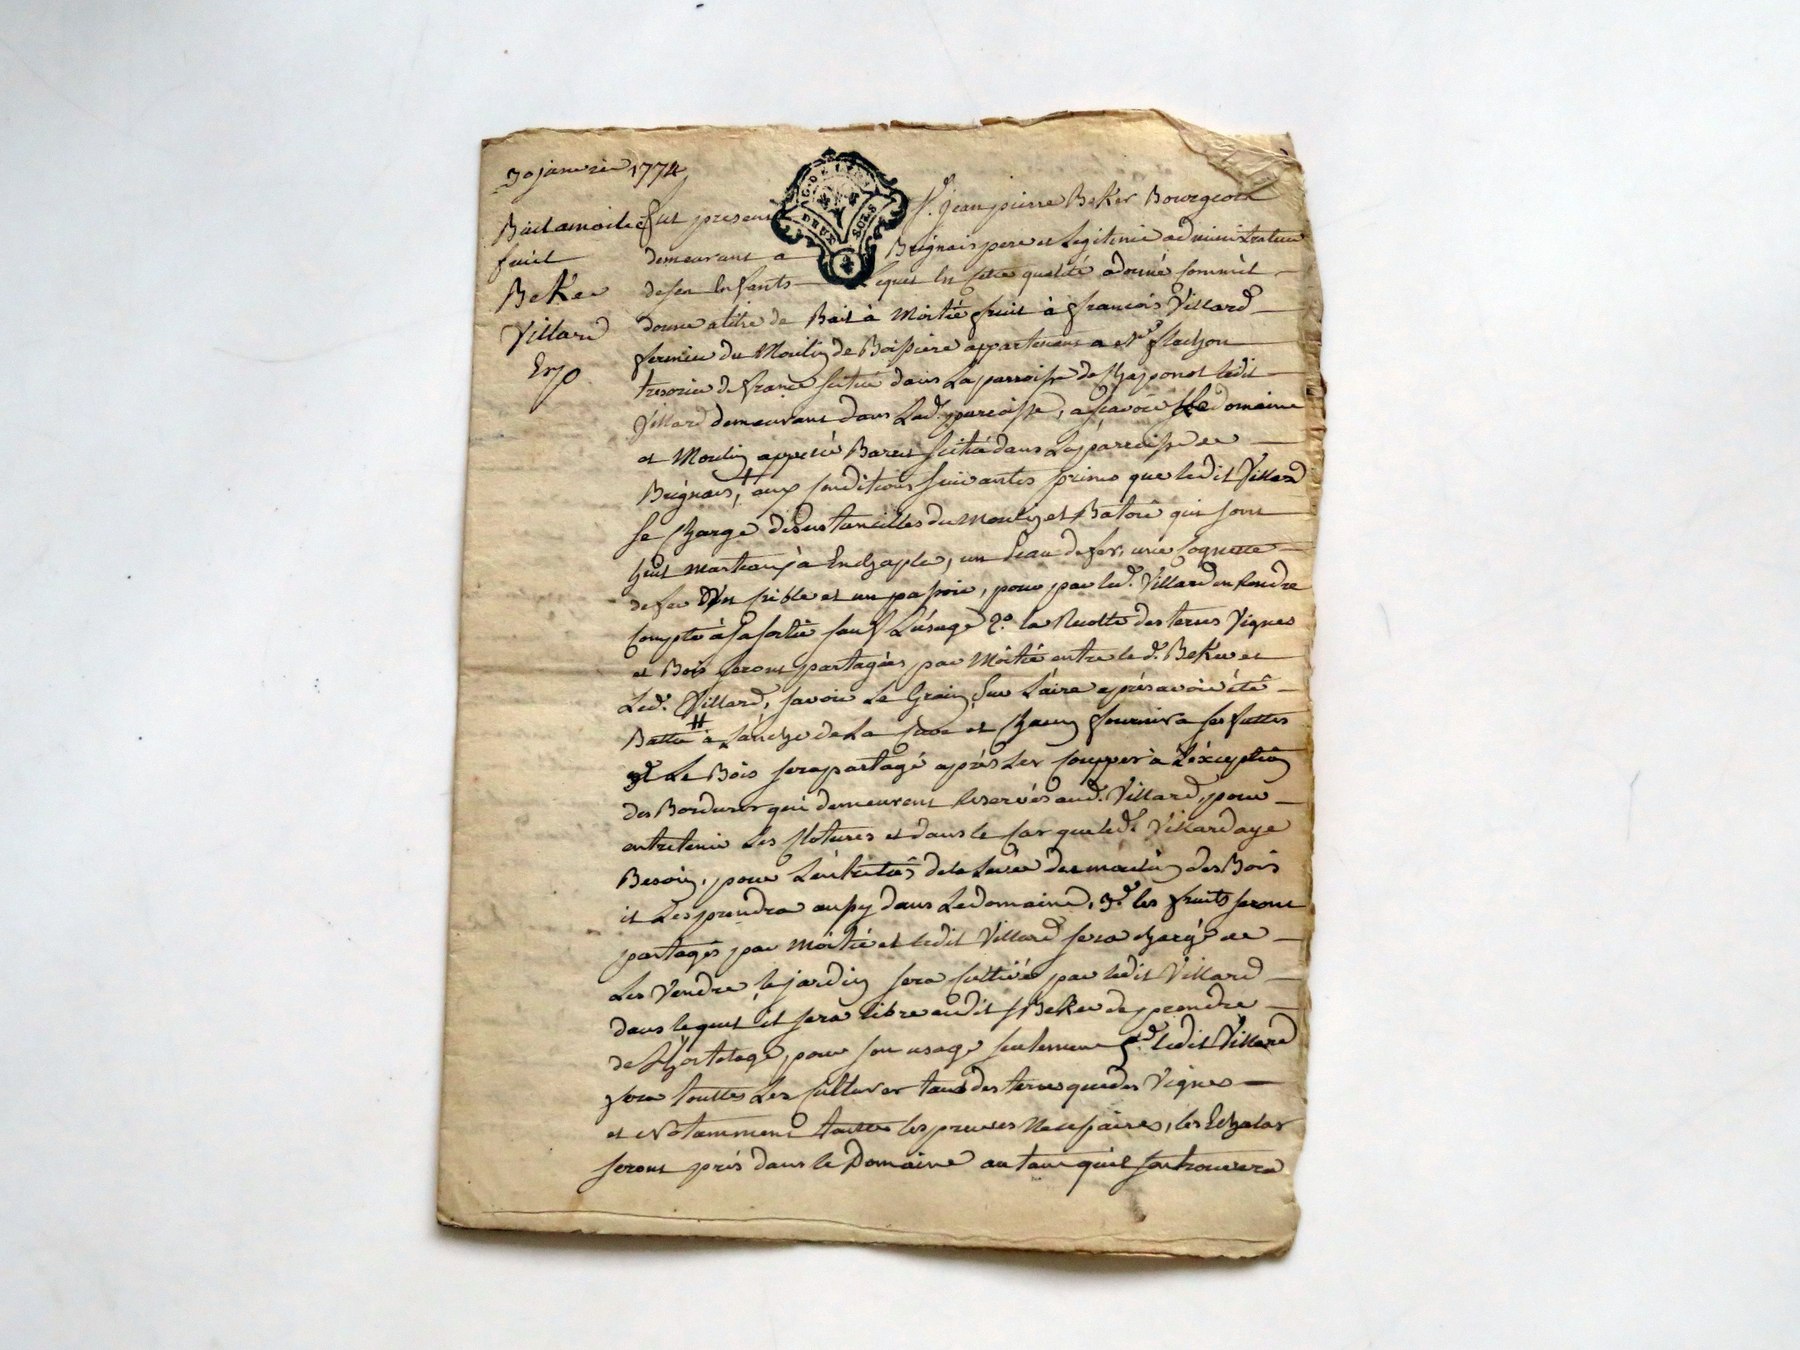 30 janvier 1774
Bail a moitié
fruit
Beker
Villard
Exp
G. DE LYON
DEUX SOLS
fut present Sr. Jean pierre Beker Bourgeois
demeurant a Brignais pere et Legitime administrateur
de ses Enfants Lequel En cette qualité a donné
donne a titre de Bail à Moitié fruit à françois Villard
fermier du Moulin de Boissiere appartenant a Mr
tresorier de france scitué dans La parroisse de Chaponot ledit
Villard demeurant dans Lad. parroisse, a scavoir Le domaine
et Moulin appellé Baret scitué dans La parroisse de
Brignais, aux conditions suivantes primo que ledit Villard
se Charge des ustancilles du Moulin et Batoir qui sont
huit marteaux à Enchaple, un de fer, une
de fer Un crible et un passoir, pour par led. Villard en rendre
Compte à Sa sortie sauf L'usage 2º. la Recolte des terres Vignes
et Bois seront partagées par Moitié entre le d. Beker et
Led. Villard, savoir Le Grain Sur L'aire après avoir été
Battu à L'anche de La Cuve et Chacun fournira ses futtes
Le Bois sera partagé après Les coupper à L'exception
des Bordures qui demeurent reservés aud. Villard, pour
entretenir Les Clotures et dans le cas que led. Villard aye
Besoin, pour L'entretien de la Levée des moulin des Bois
il Les prendra aussy dans Le domaine, 3º. les fruits seront
partagés par Moitié et ledit Villard sera chargé de
Les Vendre, le jardin sera cultivé par ledit Villard
dans lequel il sera libre audit Sr Beker de prendre
de L'hortolage, pour son usage seulement ledit Villard
fera touttes Les Cultures tant des terres que des Vignes
et Notamment toutes les necessaires, les Echalas
seront pris dans le Domaine autant qu'il s'en trouvera